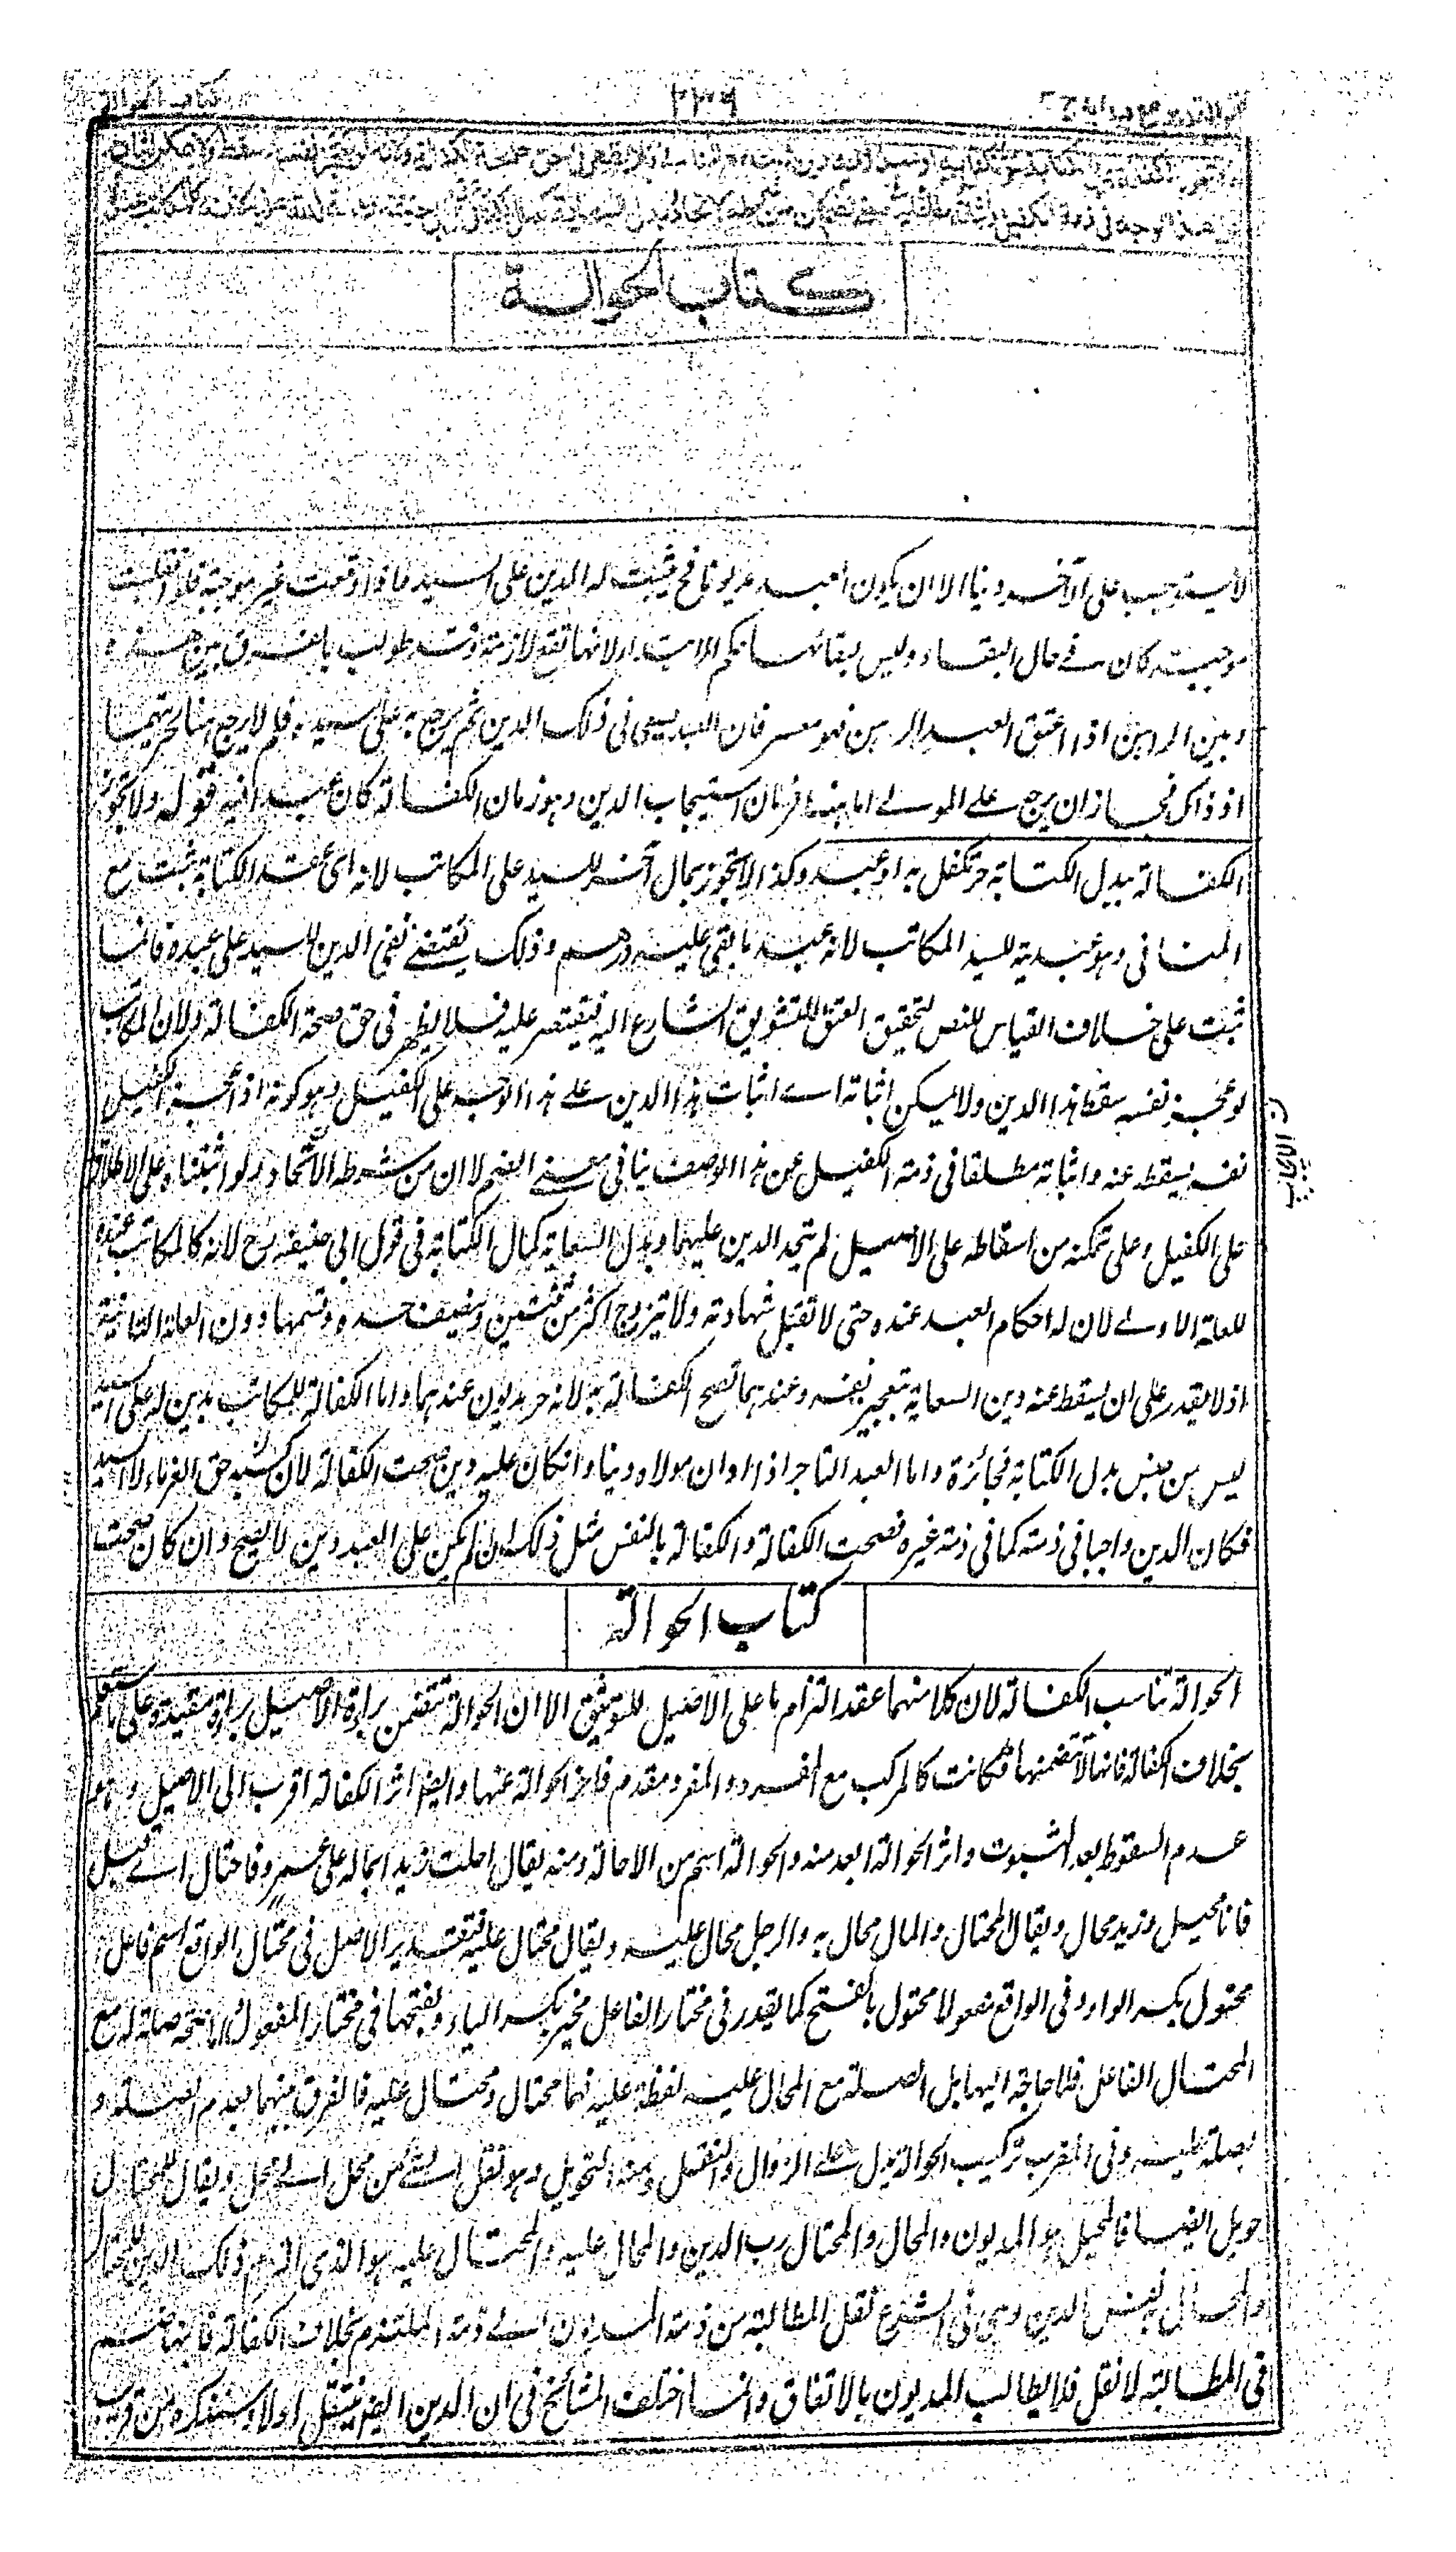 كتاب الحوالة
٢٣٩
كتاب الحوالة
لا يستوجب على الآخر دينا الا ان يكون العبد مديونا فح يثبت له الدين على السيد فاذا وقعت غير موجبة فلو انقلبت
موجبة كان في حال البقاء وليس لبقائها حكم الابتداء لانها تقع لازمة وقد طولب بالفرق بين هذه
وبين الراهن اذا اعتق العبد الرهن فهو معسر فان العبد يسعى فى ذلك الدين ثم يرجع به على سيده فلم لا يرجع هنا لحريتهما
اذ ذاك فجاز ان يرجع على المولى اما هنا فزمان استيجاب الدين وهو زمان الكفالة كان عبدا فيه قوله ولا تجوز
الكفالة ببدل الكتابة حر تكفل به او عبد وكذا لا تجوز بمال آخر للسيد على المكاتب لانه اى عقد الكتابة ثبت مع
المنافى وهو عبدية للسيد المكاتب لانه عبد ما بقى عليه درهم وذلك يقتضى نفى الدين للسيد على عبده فانما
ثبت على خلاف القياس للنص لتحقيق العتق للتشوق الشارع اليه فيقتصر عليه فلا يظهر فى حق صحة الكفالة ولان المكاتب
لو عجز نفسه سقط هذا الدين ولا يمكن اثباته اى اثبات هذا الدين على هذا الوجه على الكفيل وهو كونه اذا عجز الكفيل
نفسه يسقط عنه واثباته مطلقا فى ذمة الكفيل عن هذا الوصف ينافى معنى الضم لان من شرطه الاتحاد ولو اثبتناه على الاطلاق
على الكفيل وعلى تمكنه من اسقاطه على الاصيل لم يتحد الدين عليهما وبدل السعاية كمال الكتابة فى قول ابى حنيفة رح لانه كالمكاتب عنده
للعلة الاولى لان له احكام العبد عنده حتى لا تقبل شهادته ولا يتزوج اكثر من ثنتين وينصف حده وقسمها دون العلة الثانية
اذ لا يقدر على ان يسقط عنه دين السعاية بتعجيز نفسه وعندهما تصح الكفالة به لانه حر مديون عندهما واما الكفالة للمكاتب بدين له على السيد
ليس من جنس بدل الكتابة فجائزة واما العبد التاجر اذا ادان مولاه دينا وانكان عليه دين صحت الكفالة لان كسبه حق الغرماء لا السيد
فكان الدين واجبا فى ذمته كما فى ذمة غيره فصحت الكفالة والكفالة بالنفس مثل ذلك ان لم يكن على العبد دين لا تصح وان كان صحت
كتاب الحوالة
الحوالة تناسب الكفالة لان كلا منهما عقد التزام ما على الاصيل للتوثيق الا ان الحوالة تتضمن براءة الاصيل براءة مقيدة على ما ستعلم
بخلاف الكفالة فانها لا تتضمنها فكانت كالمركب مع المفرد والمفرد مقدم فاخر الحوالة عنها وايضا اثر الكفالة اقرب الى الاصيل وهو
عدم السقوط بعد الثبوت واثر الحوالة ابعد منه والحوالة اسم من الاحالة ومنه يقال احلت زيدا بماله على عمرو فاحتال اى قبل
فانا محيل وزيد محال ويقال المحتال والمال محال به والرجل محال عليه ويقال محتال عليه فتقدير الاصل فى محتال الواقع اسم فاعل
محتول بكسر الواو وفى الواقع مفعولا محتول بالفتح كما يقدر فى مختار الفاعل مخير بكسر الياء وبفتحها فى مختار المفعول واما صلة له مع
المحتال الفاعل فلا حاجة اليها بل الصلة مع المحال عليه لفظة عليه فهما محتال ومحتال عليه فالفرق بينهما بعدم الصلة و
بصلة عليه وفى المغرب تركيب الحوالة يدل على الزوال والنقل ومنه التحويل وهو نقل الشئ من محل الى محل ويقال للمحتال
حويل ايضا فالمحيل هو المديون والمحال والمحتال رب الدين والمحال عليه والمحتال عليه هو الذى التزم ذلك الدين للمحتال
والمحال به نفس الدين وهى فى الشرع نقل المطالبة من ذمة المديون الى ذمة الملتزم بخلاف الكفالة فانها ضم
فى المطالبة لا نقل فلا يطالب المديون بالاتفاق وانما اختلف المشائخ فى ان الدين ايضا ينتقل او لا وسنذكره من قريب